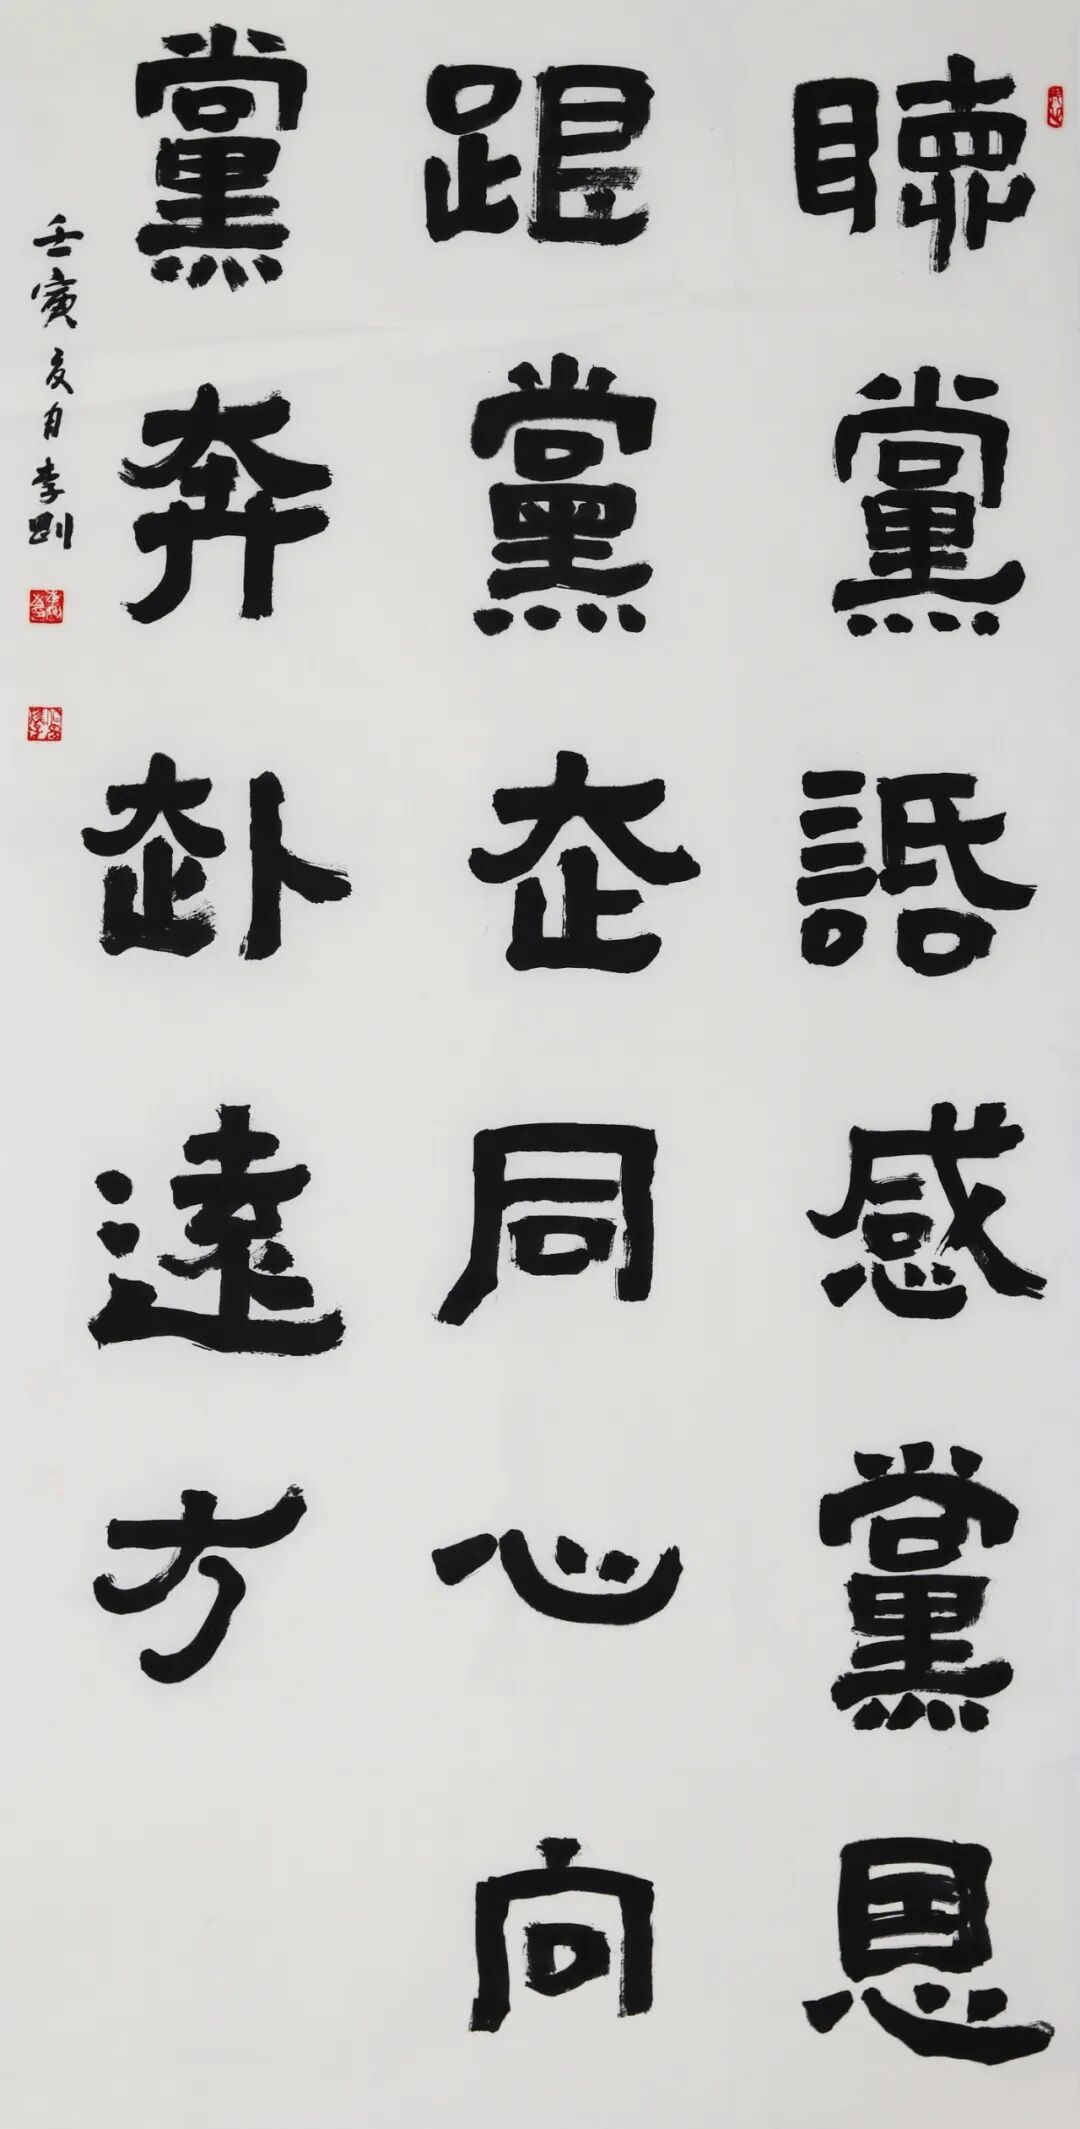 聽黨話感黨恩
跟黨走同心向
黨奔赴遠方
壬寅夏月李剛